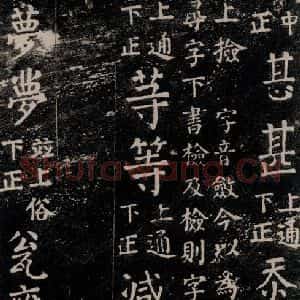 中正
甚甚上通下正
上撿 字音斂今以為
尋字下書檢及檢則字
上通下正等等上通下正減
夢夢並上俗下正瓮
Shufawang.CN